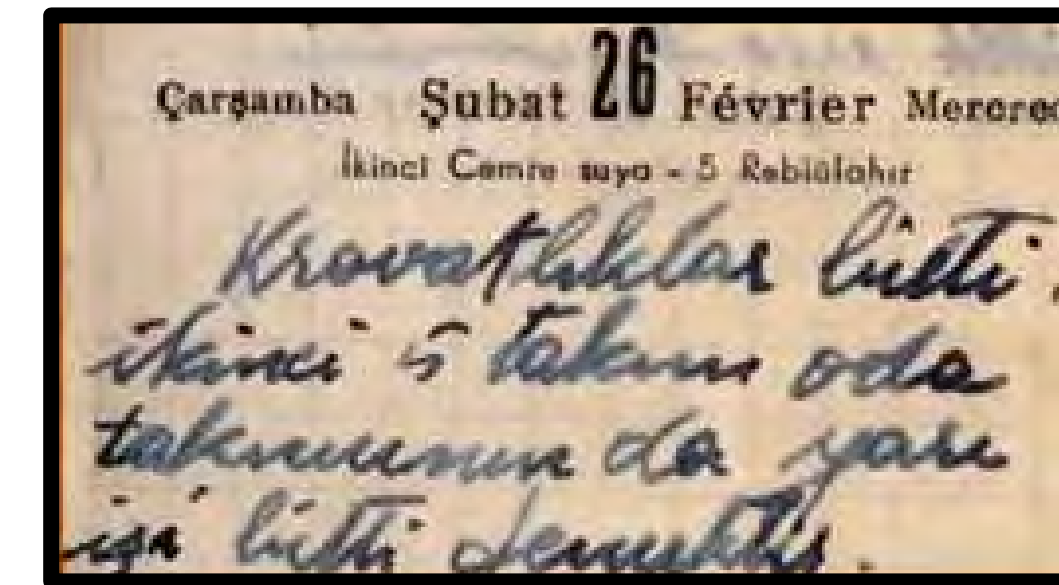 Çarşamba Şubat 26 Février Mercred
İkinci Cemre suya - 5 Rebiülahır
Kravatlıklar bitti.
ikinci 5 takım oda
takımının da yarı
işi bitti demektir.